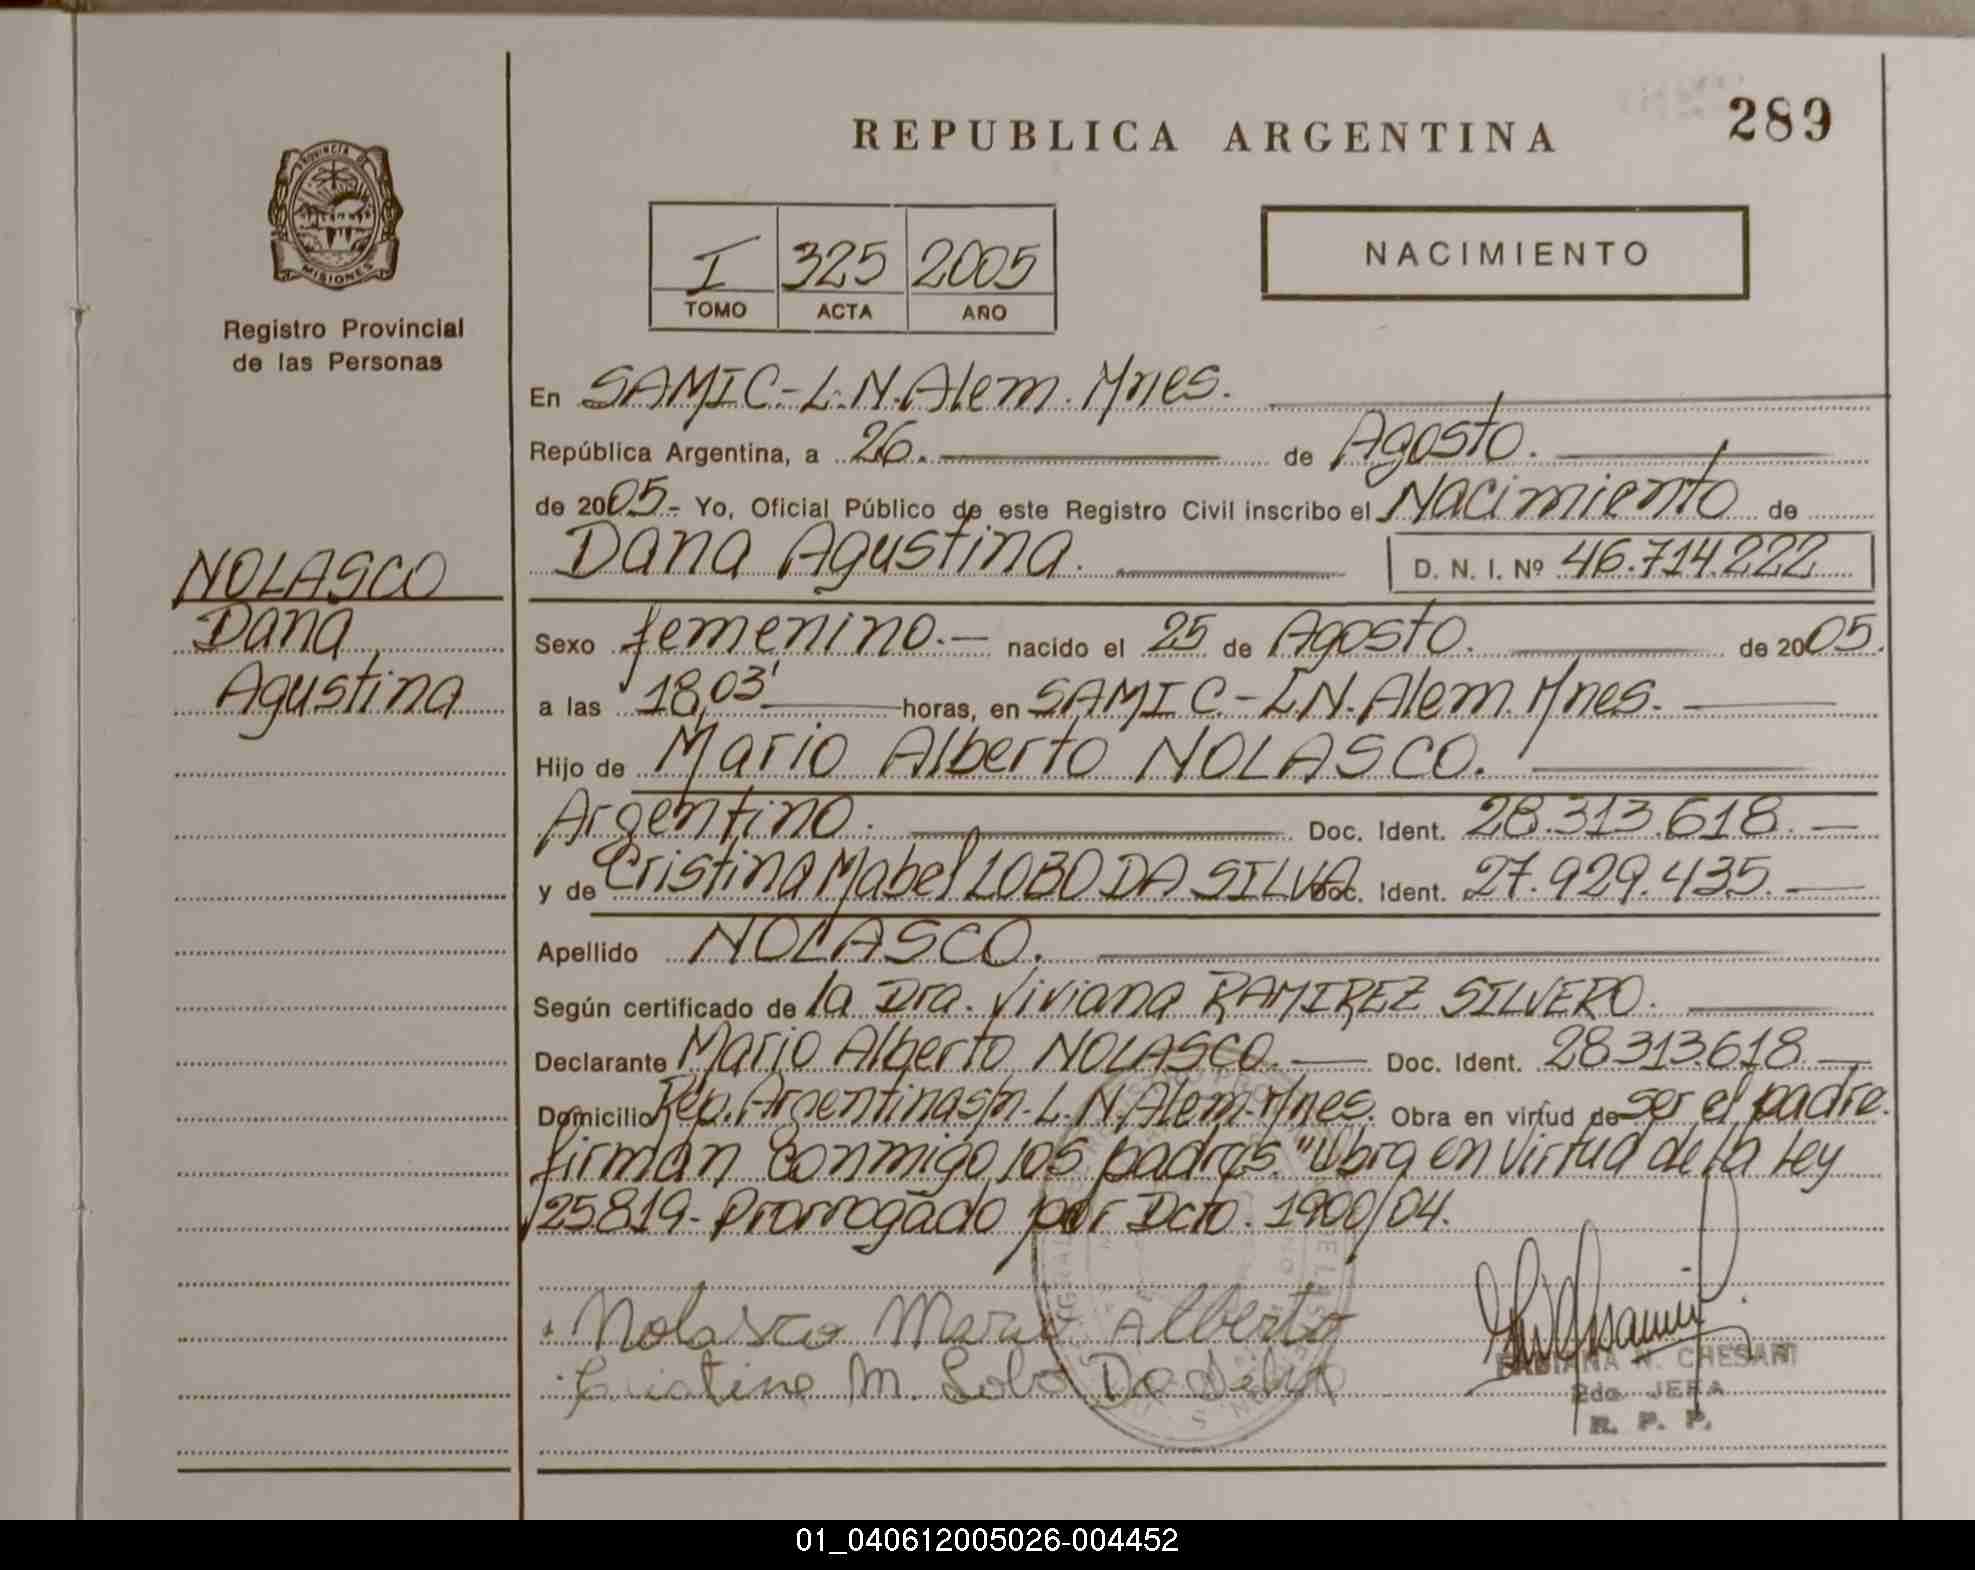 289
REPUBLICA ARGENTINA
PROVINCIA DE
MISIONES
Registro Provincial
de las Personas
I 325 2005
TOMO ACTA AÑO
NACIMIENTO
En SAMIC-L.N.Alem.Mnes.
República Argentina, a 26. de Agosto.
de 2005.- Yo, Oficial Público de este Registro Civil inscribo el Nacimiento de
Dana Agustina. D. N. I. Nº 46.714.222
NOLASCO
Dana
Agustina
Sexo femenino.- nacido el 25 de Agosto. de 2005.
a las 18,03' horas, en SAMIC-L.N.Alem.Mnes.
Hijo de Mario Alberto NOLASCO.
Argentino. Doc. Ident. 28.313.618.-
y de Cristina Mabel LOBO DA SILVA Doc. Ident. 27.929.435.-
Apellido NOLASCO.
Según certificado de la Dra. Viviana RAMIREZ SILVERO.
Declarante Mario Alberto NOLASCO.- Doc. Ident. 28.313.618.-
Domicilio Rep. Argentina s/n. L.N.Alem.Mnes. Obra en virtud de ser el padre.
firman conmigo los padres. "Obra en virtud de la Ley
25819- Prorrogado por Dcto. 1900/04.
Nolasco Mario Alberto
Cristina M. Lobo Da Silva
FABIANA N. CHESANI
2da. JEFA
R. P. P.
01_040612005026-004452